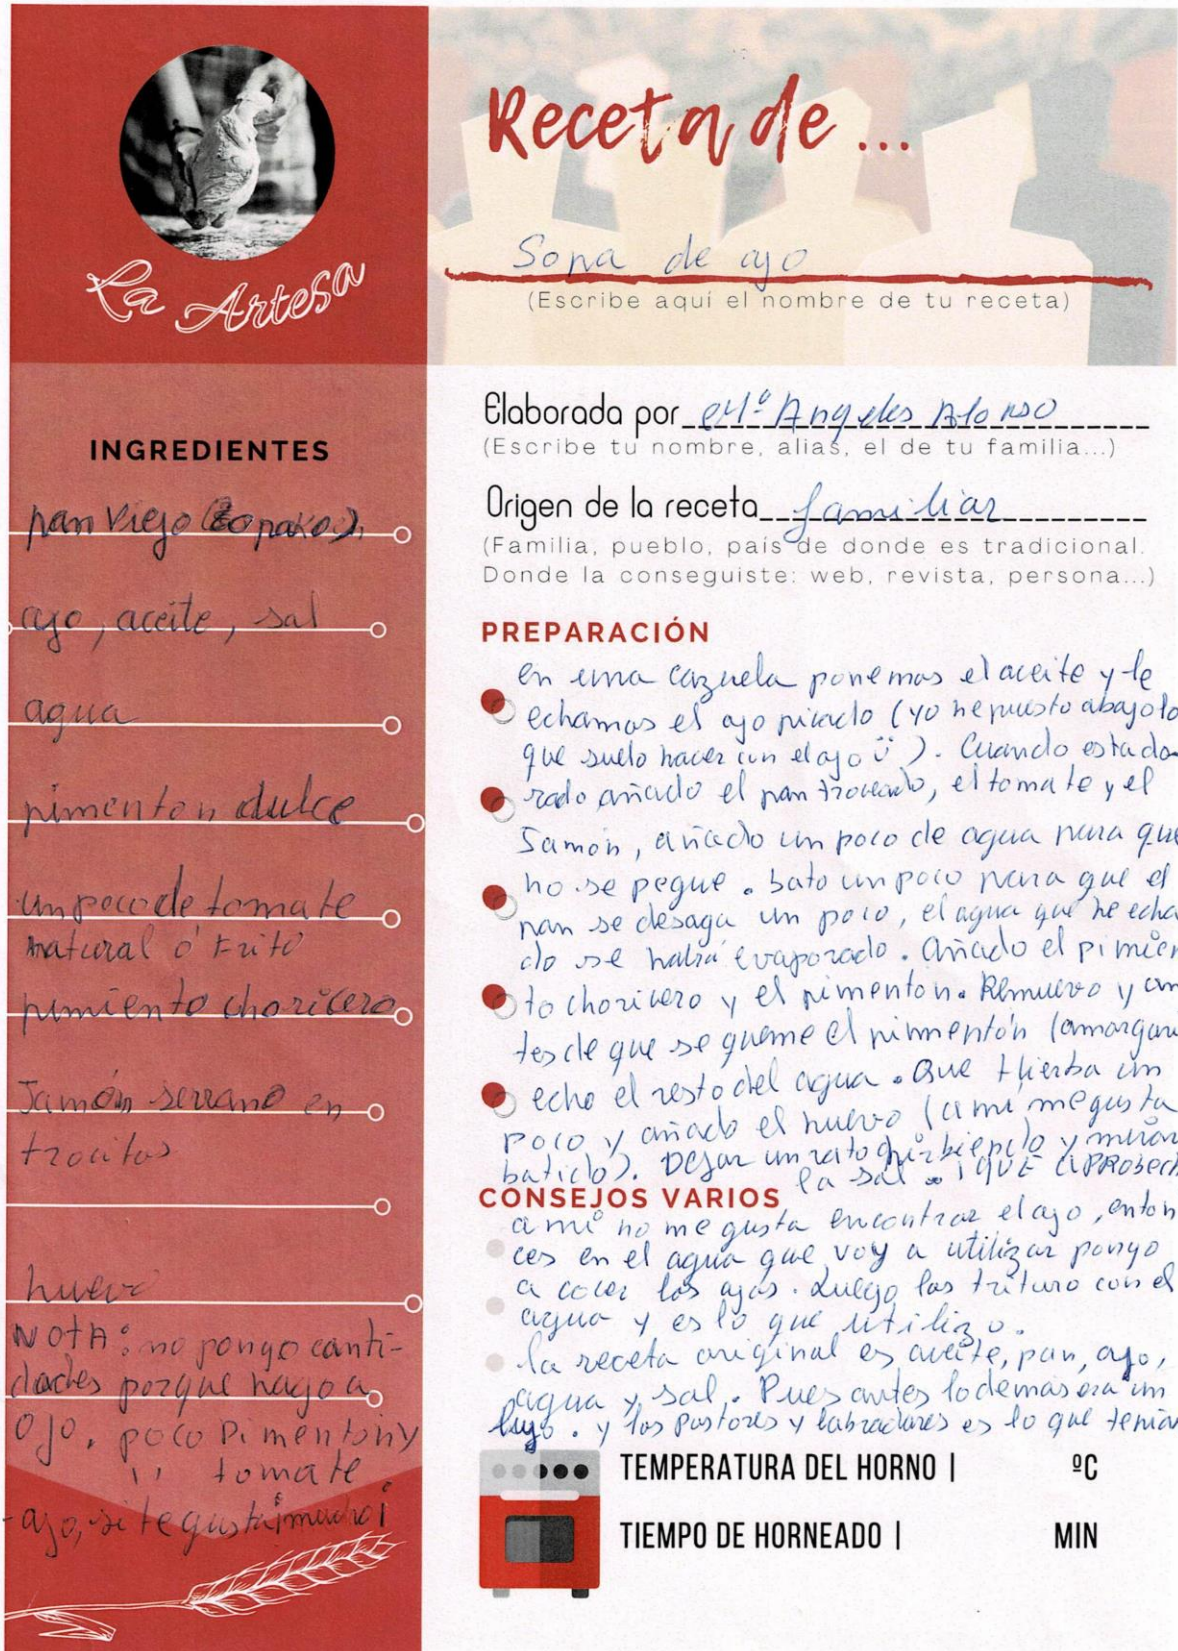 La Artesa
Receta de ...
Sopa de ajo
(Escribe aquí el nombre de tu receta)
Elaborada por Mª Angeles Alonso
(Escribe tu nombre, alias, el de tu familia...)
Origen de la receta familiar
(Familia, pueblo, país de donde es tradicional.
Donde la conseguiste: web, revista, persona...)
INGREDIENTES
pan viejo (zopako).
ajo, aceite, sal
agua
pimenton dulce
un poco de tomate
natural ó frito
pimiento choricero
Jamón serrano en
trocitos
huevo
NOTA: no pongo canti-
dades porque hago a
ojo. poco Pimenton y
" tomate
-ajo, si te gusta ¡mucho!
PREPARACIÓN
en una cazuela ponemos el aceite y le
echamos el ajo picado (yo he puesto abajo lo
que suelo hacer con el ajo ü). Cuando esta do-
rado añado el pan troceado, el tomate y el
Jamón, añado un poco de agua para que
no se pegue. bato un poco para que el
pan se desaga un poco, el agua que he echa
do se habrá evaporado. Añado el pimien
to choricero y el pimenton. Remuevo y an
tes de que se queme el pimentón (amargari
echo el resto del agua. Que Hierba un
poco y añado el huevo (a mi me gusta
batido). Dejar un rato y mirar
la sal. ¡QUE APROBECH
CONSEJOS VARIOS
a mi no me gusta encontrar el ajo, enton
ces en el agua que voy a utilizar pongo
a cocer los ajos. Luego los trituro con el
agua y es lo que utilizo.
la receta original es aceite, pan, ajo,
agua y sal. Pues antes lo demas era un
lujo. y los pastores y labradores es lo que tenian
TEMPERATURA DEL HORNO | ºC
TIEMPO DE HORNEADO | MIN